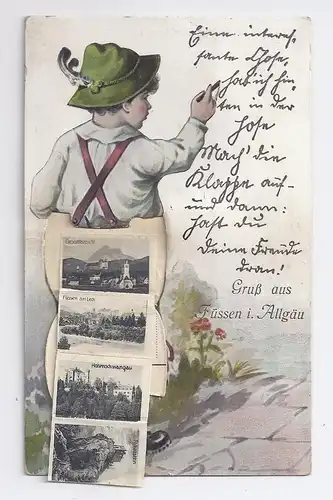 Eine interes-
sante Hose,
hab ich hin-
ten in der
Hose
Mach' die
Klappe auf-
und dann:
hast Du
Deine Freude
dran!
Gruß aus
Füssen i. Allgäu
Füssen am Lech
Hohenschwangau